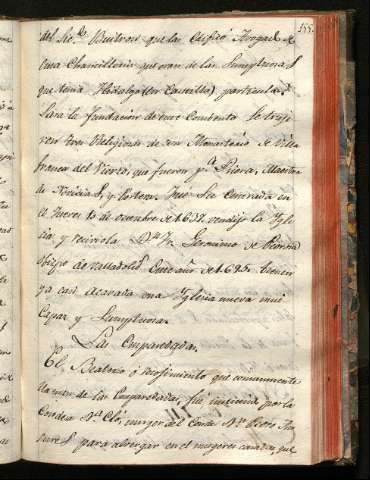 555.
del Lic.do Buitron que las edificó Abogado de
esta Chancilleria que eran de las sumptuosas
que tenia Hidalgo (en Castilla) particular
Para la fundacion de este Combento se truje
ron tres Religiosas de su Monasterio de Villa
franca del Vierzo, que fueron p.a Priora, Maestra
de Novicias, y Portera
el Jueves 10 de de 1637. vendijo la Ygle
sia y D.n Fr. Geronimo de
Obispo de Valladolid. Este año de 1695. tienen
ya casi acavada una Yglesia nueva mui
Capaz y Sumptuosa.
Las Emparedadas.
El Beaterio ó recojimiento que comunmente
llaman de las Emparedadas, fué instituido por la
Condesa D.a Elo, muger del Conde D.n Pedro An
sures para alvergar en el mugeres casadas, que